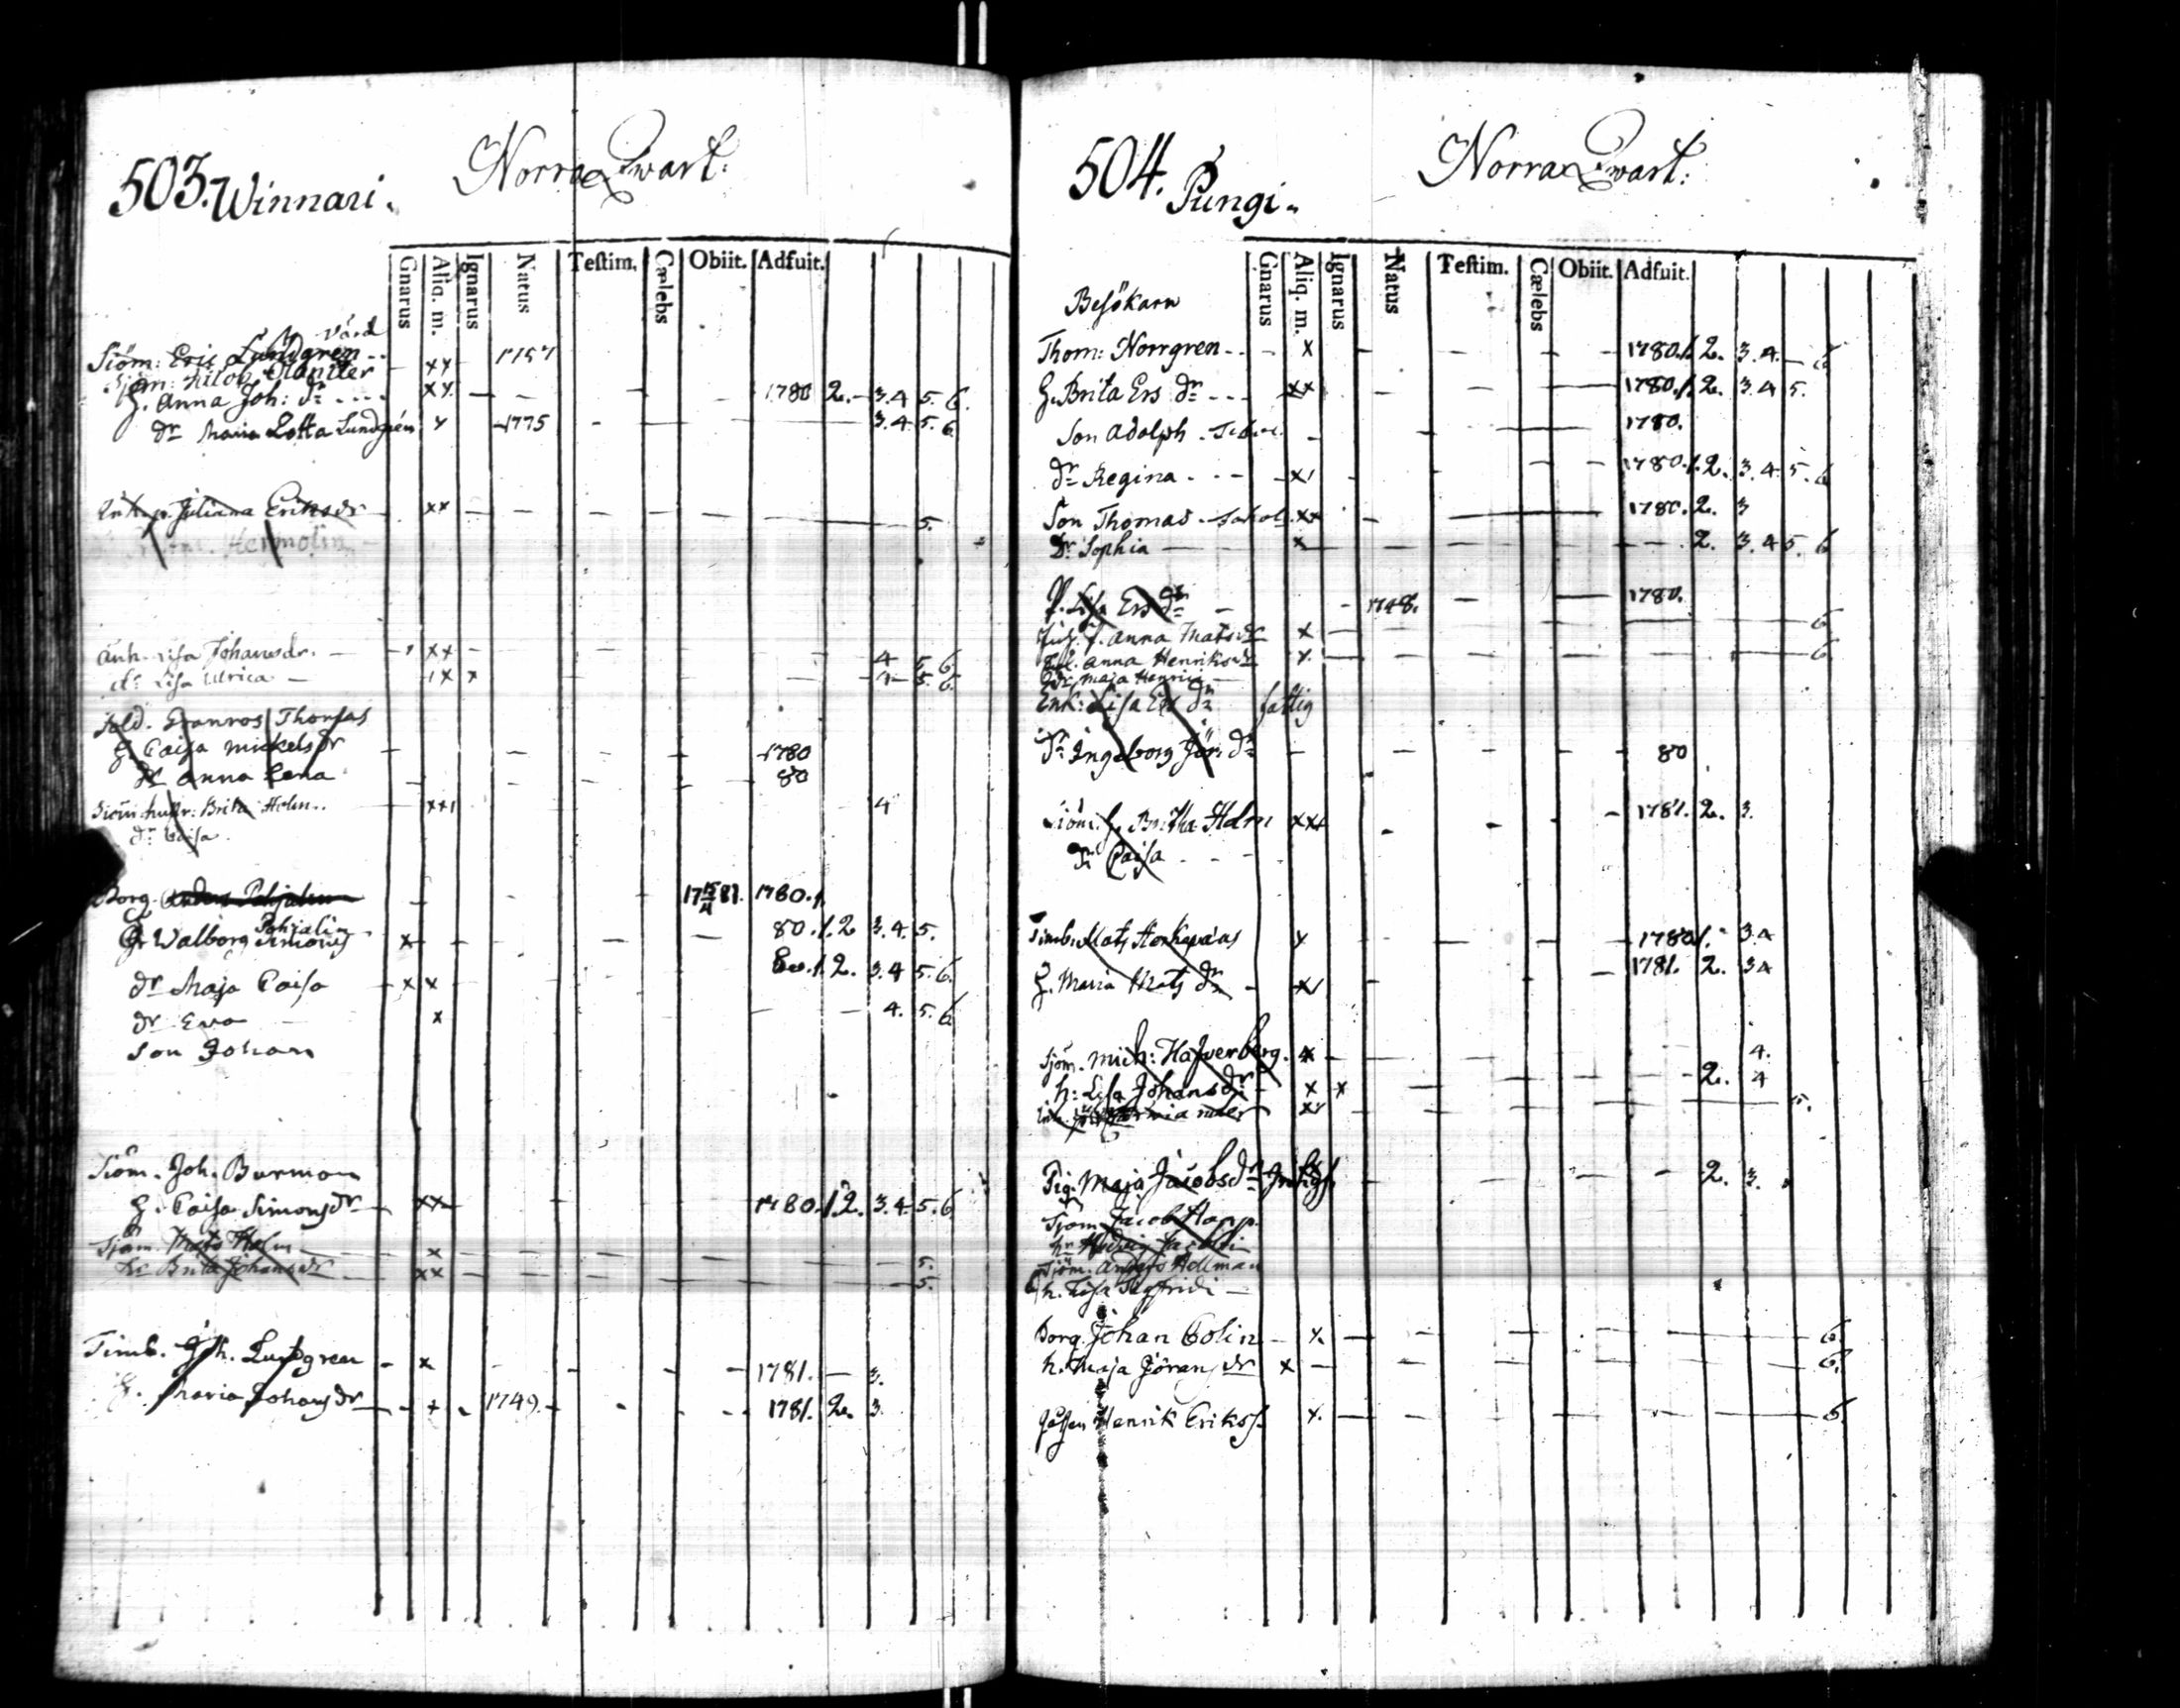 503. Winnari.
Norra Qwart:
Gnarus Aliq. m. Ignarus Natus Testim. Cælebs Obiit. Adfuit.
Värd
Siöm: Eric Lundgren - - xx 1757
Sjöm:
H. Anna Joh: dr - - - xx 1780 2. 3. 4 5. 6.
dr Maria Lotta Lundgrén x 1775 3. 4 5. 6
Juliana Eriksdr xx 5.
Hermolin
Enk. Lisa Johansdr. xx 4 5. 6
dr Lisa Ulrica x x 5. 6.
Sold. Thomas
H. Caisa Mickelsdr 1780
dr Anna Lena 80
Brita Holm xx 4
dr Caisa
Borg. 1781. 1780. 1.
Pohjalin
Walborg Simons x 80. 1. 2 3. 4. 5.
dr Maja Caisa x x 80. 1. 2. 3. 4 5. 6.
dr Eva x 4. 5. 6
Son Johan
Siöm. Joh. Burman
H. Caisa Simonsdr xx 1780. 1. 2. 3. 4 5. 6
Sjöm. Mats Holm x 5.
hr Brita Johansdr xx 5.
Timb. Joh. Lundgren x 1781. 3.
H. Maria Johansdr + 1749. 1781. 2. 3.
504. Pungi.
Norra Qwart:
Gnarus Aliq. m. Ignarus Natus Testim. Cælebs Obiit. Adfuit.
Besökarn
Thom: Norrgren - - x 1780. 1. 2. 3. 4. 6
H. Brita Ers dr - - - xx 1780. 1. 2. 3. 4 5.
Son Adolph 1780.
dr Regina - - - x 1780. 1. 2. 3. 4. 5. 6
Son Thomas xx 1780. 2. 3
Dr Sophia x 2. 3. 4 5. 6
P. Lisa Ers dr 1748. 1780.
Anna Matsdr x 6
Anna Henriksdr x. 6
Maja
Enk: Lisa Ers dr fattig
dr Ingeborg Jör. dr 80
Siöm. H. Britha Holm xxx 1781. 2. 3.
dr Caisa - - -
Timb. Mats x 1780. 1. 3. 4
H. Maria Mats dr x 1781. 2. 3 4
Sjöm. Mich: Hafverberg. x 4.
h: Lisa Johansdr x x 2. 4
xx 5.
Pig. Maja Jacobsdr 2. 3.
Sjöm. Jacob
hr Hedvig
Sjöm. Anders Hellman
h. Lisa Sigfridi
Borg. Johan Colin x. 6.
h. Maja Jöransdr x 6.
Henrik Erikss. x. 6.